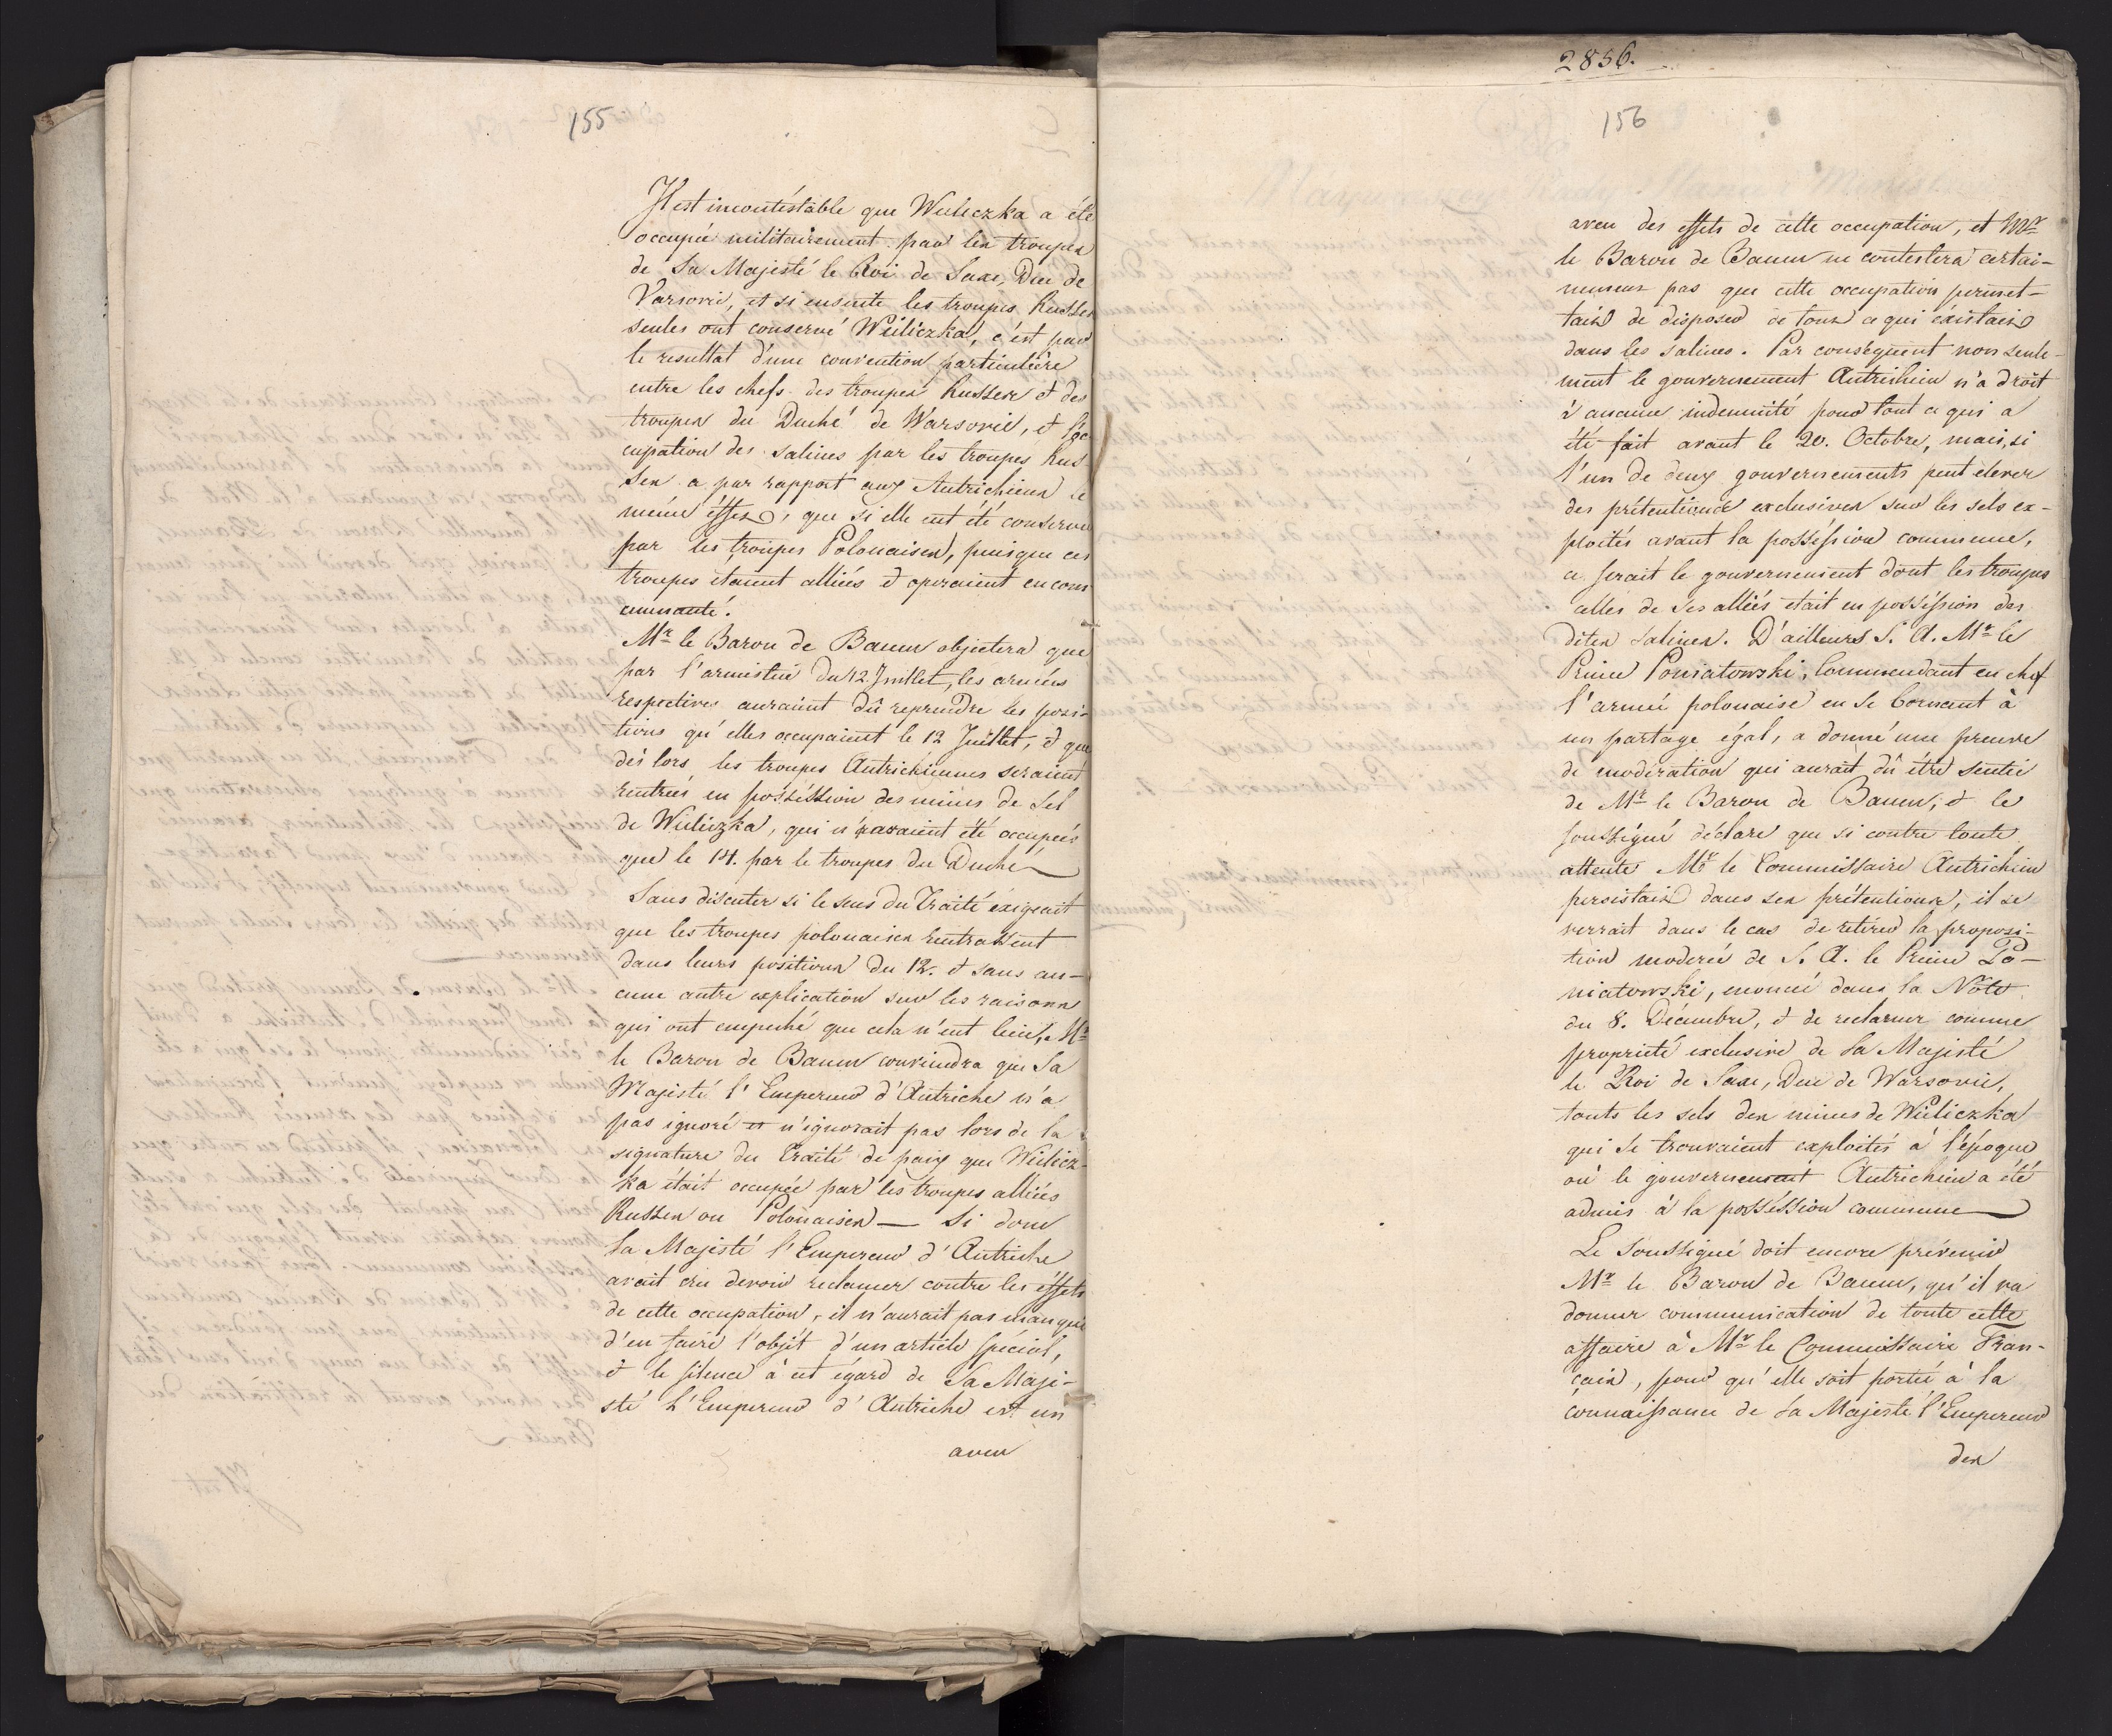 155
Il est incontéstable que Wieliczka a été
occupée militairement par les troupes
de Sa Majesté le Roi de Saxe, Duc de
Varsovie, et si ensuite les troupes Russes
seules ont conservé Wieliczka, c'est par
le resultat d'une convention particulière
entre les chefs des troupes Russes et des
troupes du Duché de Warsovie, et l'oc-
cupation des salines par les troupes Rus-
ses a par rapport aux Autrichiens le
même éffet, que si elle eut été conservée
par les troupes Polonaises, puisque ces
troupes étaient alliées et operaient en com
munauté.
Mr le Baron de Baum objectera que
par l'armistice du 12 Juillet, les armées
respectives auraient dû reprendre les posi-
tions qu'elles occupaient le 12 Juillet, et que
dès lors les troupes Autrichiennes seraient
rentrées en posséssion des mines de Sel
de Wieliczka, qui n'avaient été occupées
que le 14. par le troupes du Duché
Sans discuter si le sens du Traité éxigeait
que les troupes polonaises rentrassent
dans leurs positions du 12. et sans au-
cune autre explication sur les raisons
qui ont empeché que cela n'eut lieu, Mr
le Baron de Baum conviendra que Sa
Majesté l'Empereur d'Autriche n'a
pas ignoré et n'ignorait pas lors de la
signature du Traité de paix que Wielicz-
ka était occupée par les troupes alliées
Russes ou Polonaises — Si donc
Sa Majesté l'Empereur d'Autriche
avait cru devoir reclamer contre les éffets
de cette occupation, il n'aurait pas manqué
d'en faire l'objèt d'un article spécial,
et le silence à cet égard de Sa Maje-
sté L'Empereur d'Autriche est un
aveu
2856.
156
aveu des effets de cette occupation, et Mr
le Baron de Baum ne contestera certai-
nement pas que cette occupation permet-
tait de disposer de tout ce qui éxistait
dans les salines. Par conséquent non seule-
ment le gouvernement Autrichien n'a droit
à aucune indemnité pour tout ce qui a
été fait avant le 20. Octobre, mais, si
l'un de deux gouvernements peut élever
des prétentions exclusives sur les sels ex-
ploités avant la posséssion commune,
ce serait le gouvernement dont les troupes
celles de ses alliés était en posséssion des
dites salines. D'ailleurs S. A. Mr le
Prince Poniatowski, Commendant en chef
l'armée polonaise en se bornant à
un partage égal, a donné une preuve
de modération qui aurait dû être sentie
de Mr le Baron de Baum, et le
soussigné déclare que si contre toute
attente Mr le Commissaire Autrichien
persistait dans ses prétentions, il se
verrait dans le cas de retirer la proposi-
tion moderée de S. A. le Prince Po-
niatowski, énoncée dans la Note
du 8. Décembre, et de reclamer comme
propriété exclusive de Sa Majesté
le Roi de Saxe, Duc de Warsovie,
touts les sels des mines de Wieliczka
qui se trouvaient exploités à l'époque
où le gouvernement Autrichien a été
admis à la posséssion commune
Le Soussigné doit encore prévenir
Mr le Baron de Baum, qu'il va
donner communication de toute cette
affaire à Mr le Commissaire Fran-
çais, pour qu'elle soit portée à la
connaissance de Sa Majesté l'Empereur
des